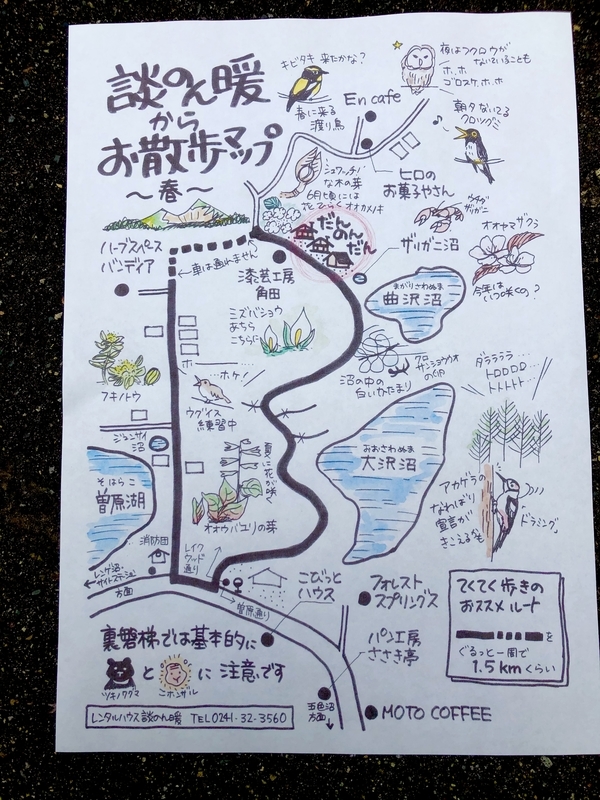 談のん暖
から
お散歩マップ
～春～
キビタキ 来たかな?
春に来る
渡り鳥
En cafe
夜はフクロウが
ないていることも
ホ、ホ
ゴロスケ、ホ、ホ
朝夕ないてる
クロツグミ
ヒロの
お菓子やさん
シュワッチ!
な木の芽
6月頃には
花ひらく オオカメノキ
だん
のん
だん
ザリガニ沼
ウチダ
ザリガニ
オオヤマザクラ
今年は
いつ咲くの?
ハーブスペース
バンディア
車は通れません
漆芸工房
角田
まがりさわぬま
曲沢沼
ミズバショウ
あちら
こちらに
クロ
サンショウウオ
の卵
沼の中の
白いかたまり
フキノトウ
ホー
ホケ!
ウグイス
練習中
ダララララ…
トロロロロ
トトトトト
ジュンサイ
沼
夏に花が咲く
おおさわぬま
大沢沼
そはらこ
曽原湖
オオウバユリの芽
アカゲラの
なわばり
宣言が
きこえるかも
ドラミング
消防団
レイク
ウッド
通り
レンゲ沼・
サイトステーション
方面
曽原通り
こびっと
ハウス
フォレスト
スプリングス
てくてく歩きの
おススメルート
を
ぐるっと一周で
1.5kmくらい
裏磐梯では基本的に
と に 注意です
ツキノワグマ
ニホンザル
パン工房
ささき亭
五色沼
方面
MOTO COFFEE
レンタルハウス 談のん暖 TEL0241-32-3560